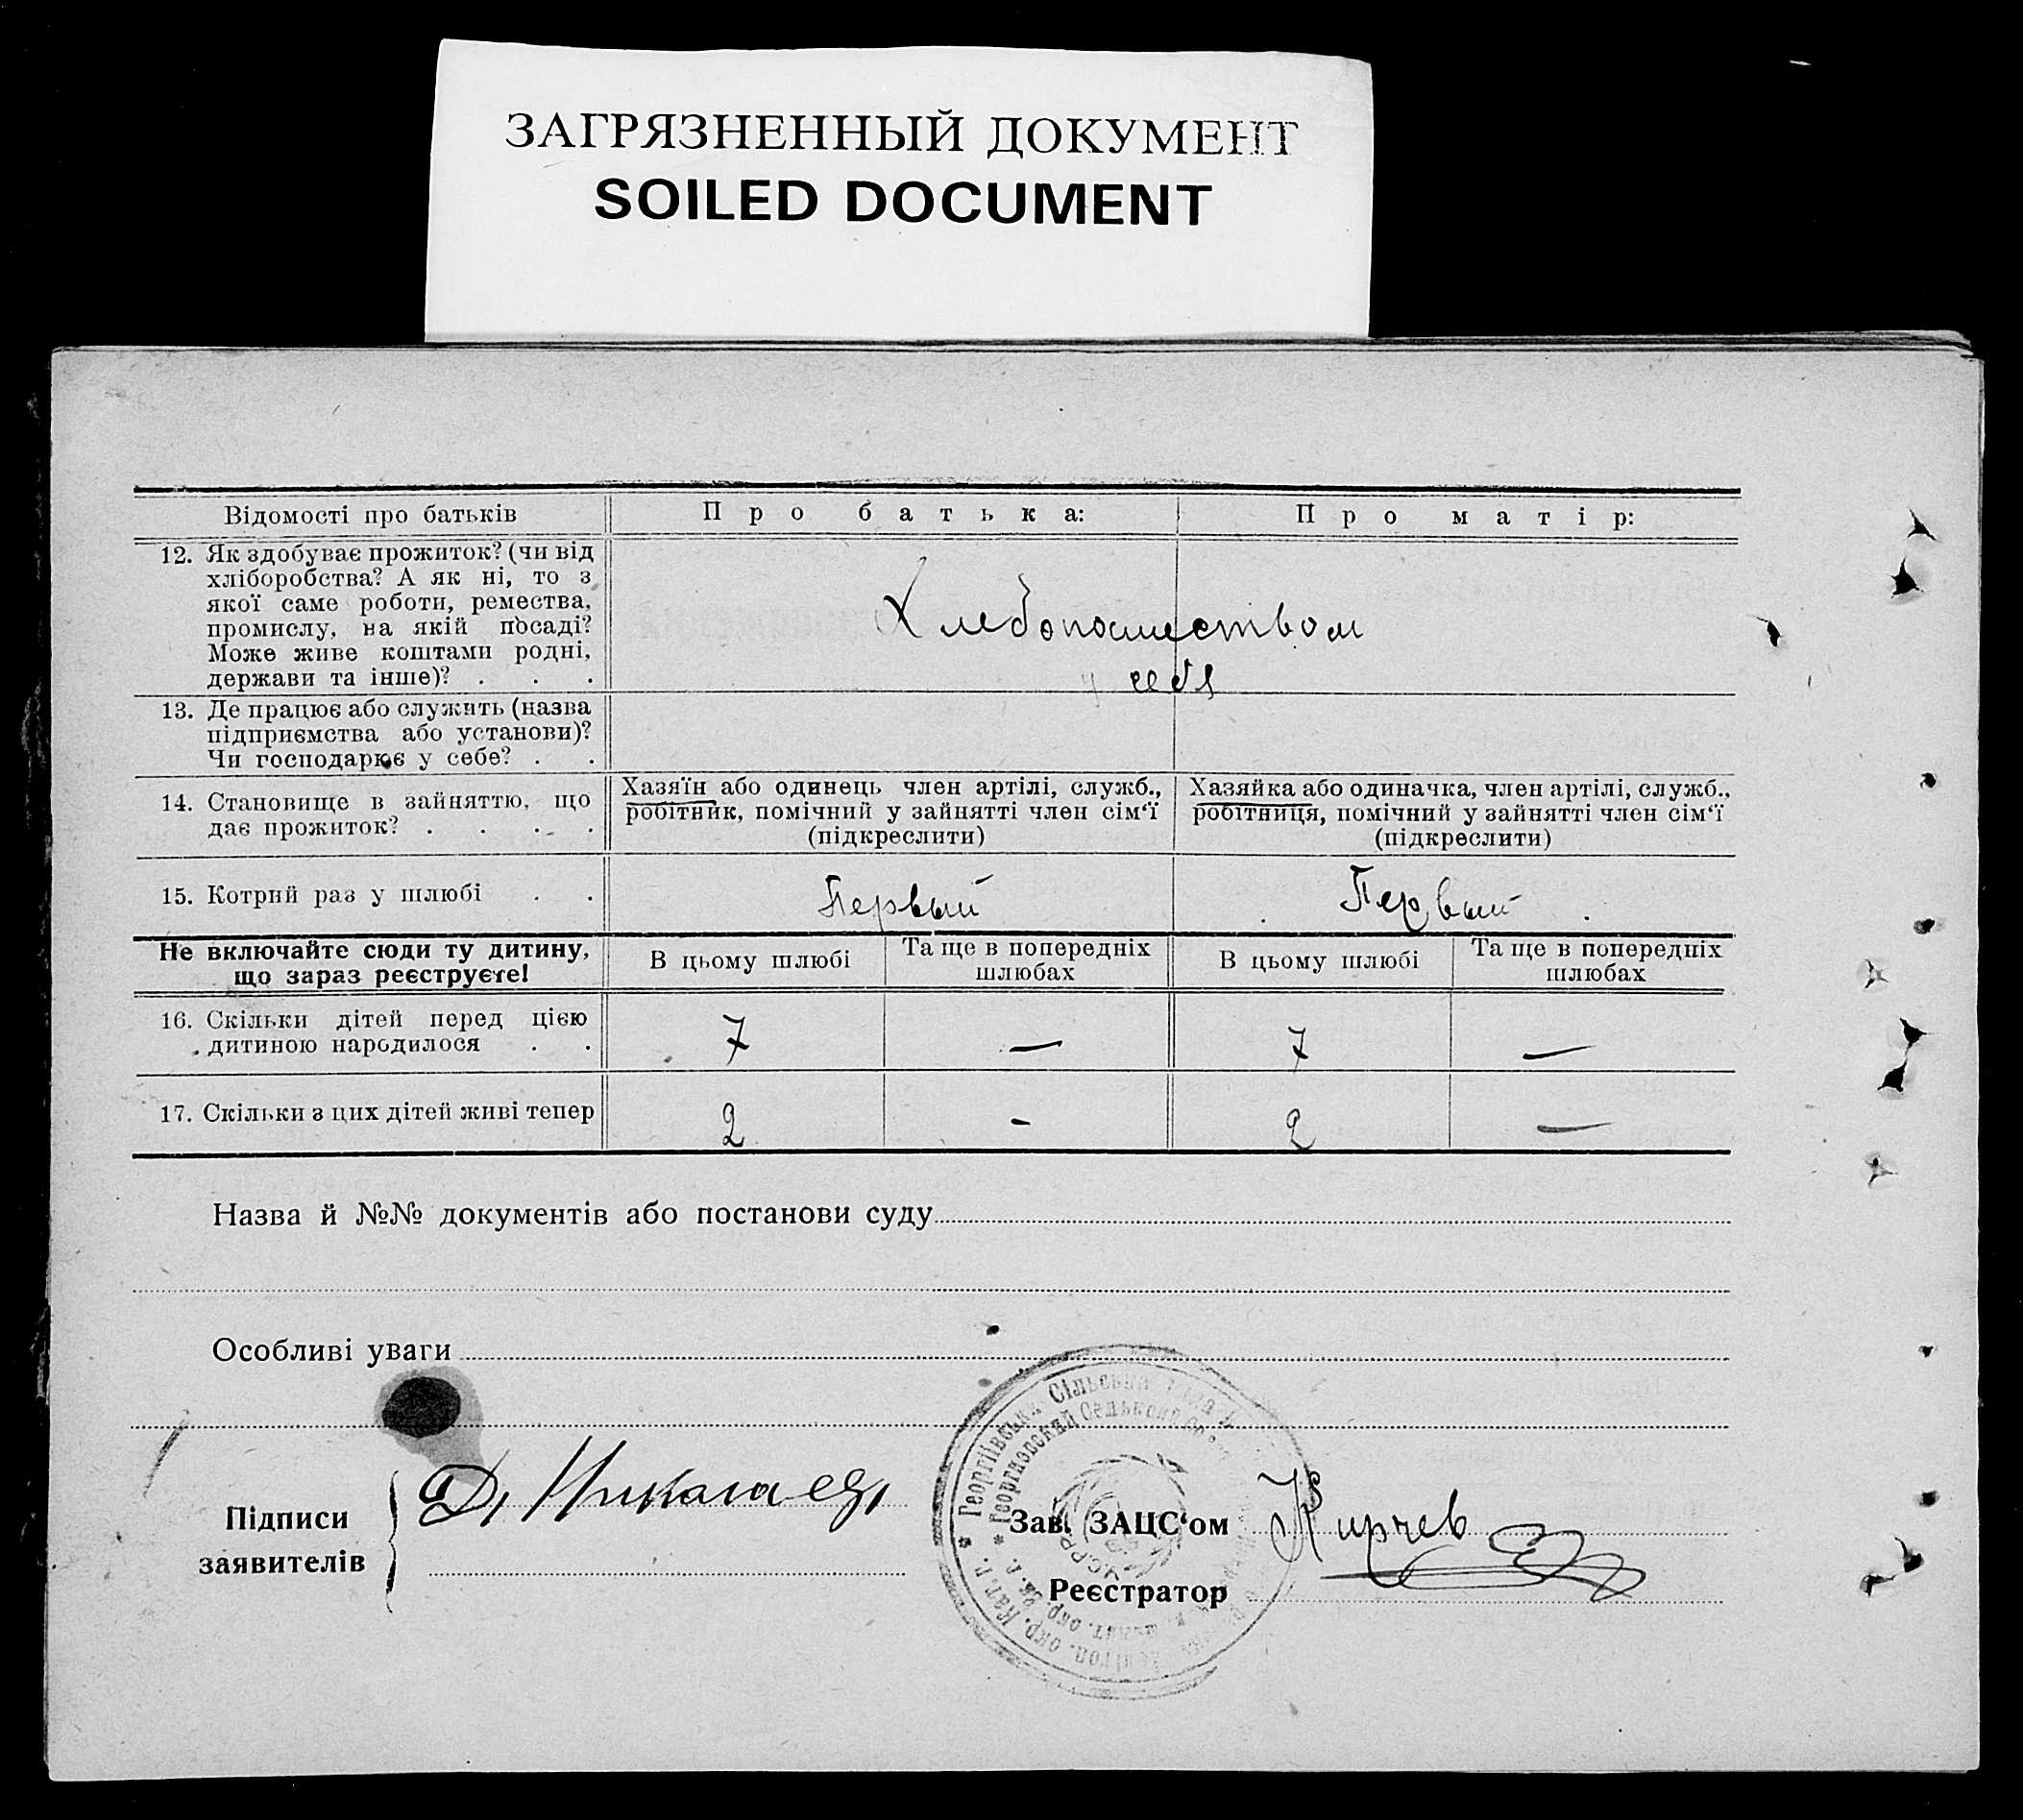 ЗАГРЯЗНЕННЫЙ ДОКУМЕНТ
SOILED DOCUMENT
Відомості про батьків
Про батька:
Про матір:
12. Як здобуває прожиток? (чи від
хліборобства? А як ні, то з
якої саме роботи, ремества,
промислу, на якій посаді?
Може живе коштами родні,
держави та інше)? . . .
Хлебопашеством
у себя
13. Де працює або служить (назва
підприємства або установи)?
Чи господарює у себе? . .
14. Становище в зайняттю, що
дає прожиток? . . . .
Хазяїн або одинець член артілі, служб.,
робітник, помічний у зайнятті член сім‘ї
(підкреслити)
Хазяйка або одиначка, член артілі, служб.,
робітниця, помічний у зайнятті член сім‘ї
(підкреслити)
15. Котрий раз у шлюбі . .
Первый
Первый
Не включайте сюди ту дитину,
що зараз реєструєте!
В цьому шлюбі
Та ще в попередніх
шлюбах
В цьому шлюбі
Та ще в попередніх
шлюбах
16. Скільки дітей перед цією
дитиною народилося . .
7
—
7
—
17. Скільки з цих дітей живі тепер
2
-
2
—
Назва й №№ документів або постанови суду
Особливі уваги
Підписи
заявителів
Д. Николаев
Георгіївська Сільська
Георгиевский Сельский
Зав. ЗАЦС‘ом
Кирчев
Реєстратор